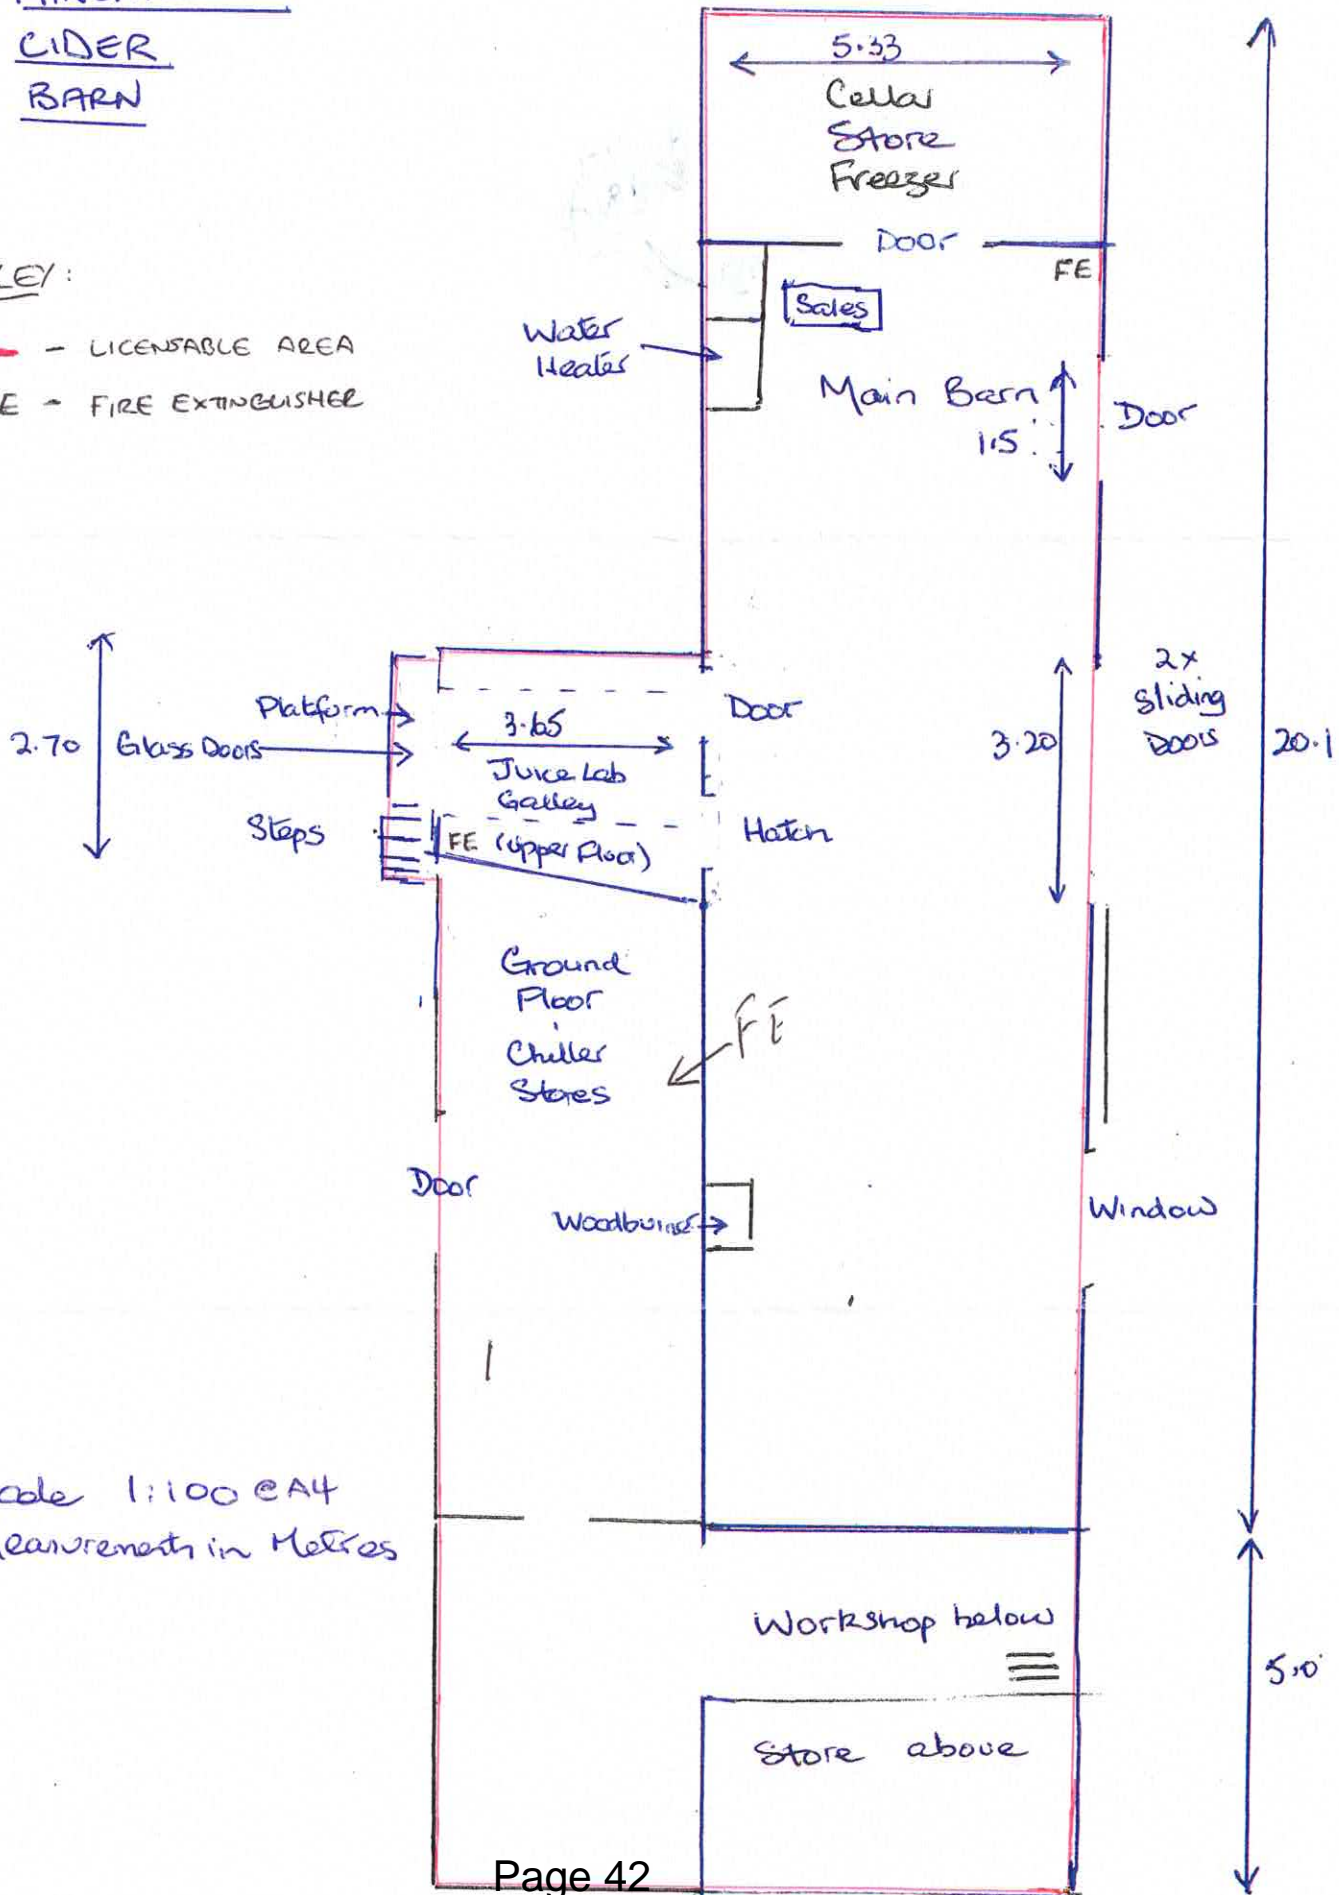 CIDER
BARN
KEY:
- LICENSABLE AREA
FE - FIRE EXTINGUISHER
5.33
Cellar
Store
Freezer
Door
FE
Sales
Water
Heater
Main Barn
1.5
Door
2.70
Platform
Glass Doors
Steps
3.65
Juice Lab
Galley
FE (upper Floor)
Door
Hatch
3.20
2x
Sliding
Doors
20.1
Ground
Floor
Chiller
Stores
FE
Door
Woodburner
Window
Scale 1:100 @ A4
Measurements in Metres
Workshop below
Store above
5.0
Page 42